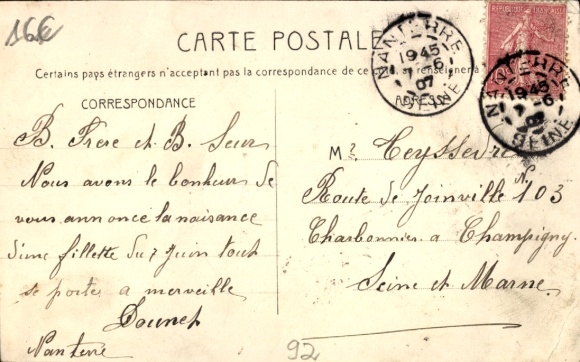 16€
CARTE POSTALE
Certains pays étrangers n'acceptant pas la correspondance de ce côté, se renseigner à
CORRESPONDANCE
ADRESSE
REPUBLIQUE FRANÇAISE
NANTERRE
1945
7-6
07
SEINE
NANTERRE
1945
7-6
SEINE
B. Frere et B. Seur
Nous avons le bonheur de
vous annonce la naisance
d'une fillette du 7 Juin tout
se porte a merveille
Dounet
Nanterre
Mr Teyssedre
Route de Joinville No 103
Charbonnier a Champigny
Seine et Marne
92